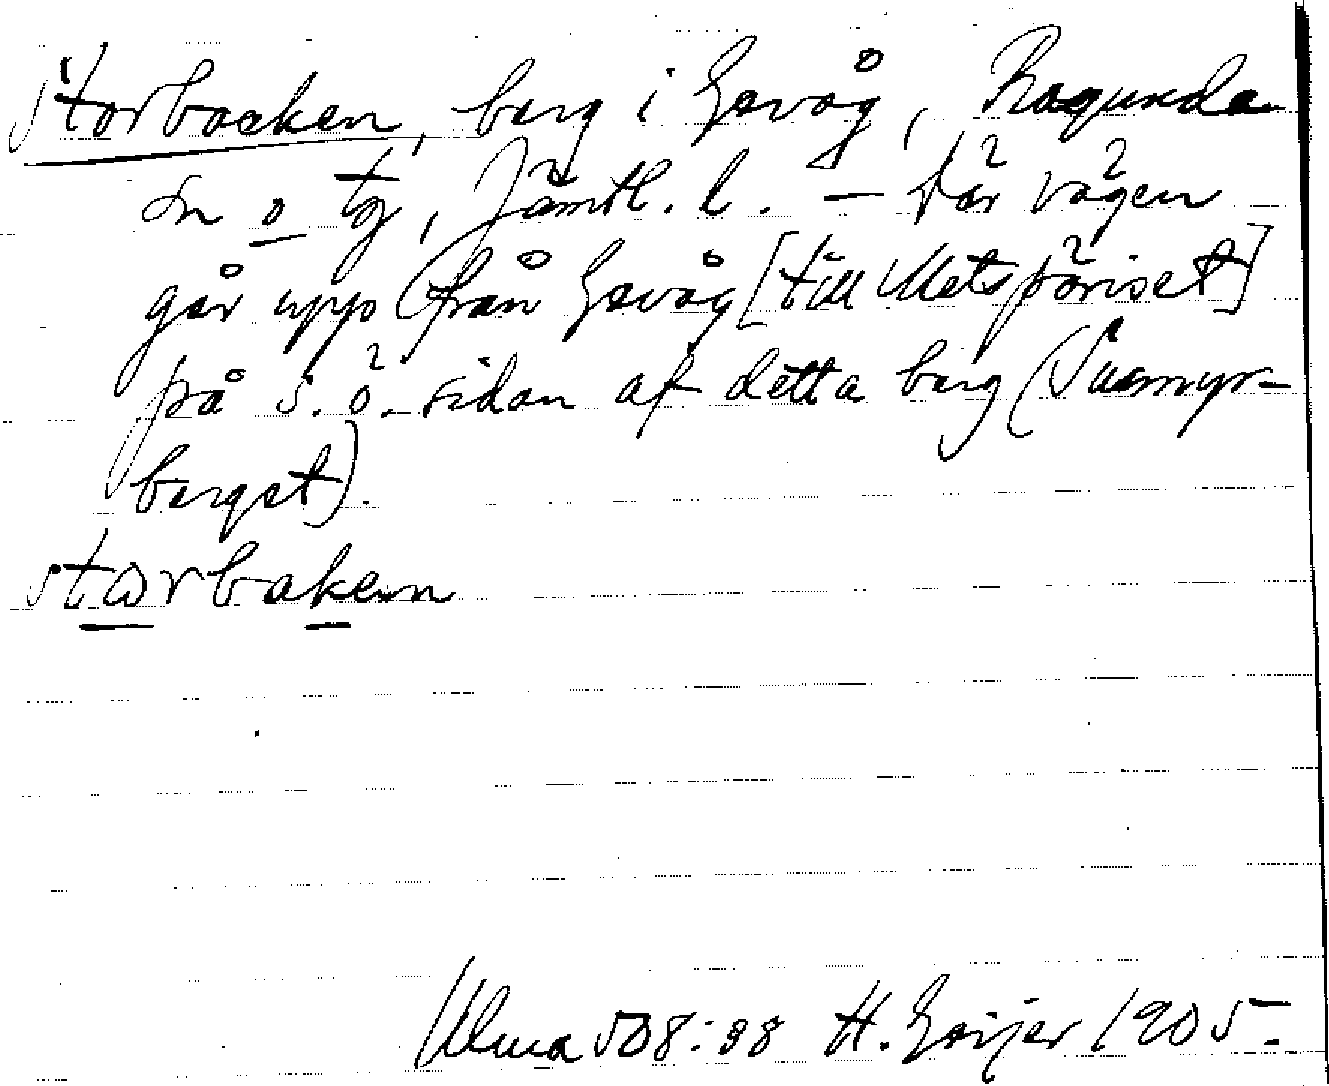 Storbacken, berg i Gevåg, Ragunda
sn o tg, Jämtl. l. – Där vägen
går upp (från Gevåg [till Metsjöriset]
på s. ö. sidan af detta berg (Susmyr-
berget).
storbaken
Ulma 508:98 H. Geijer 1905.